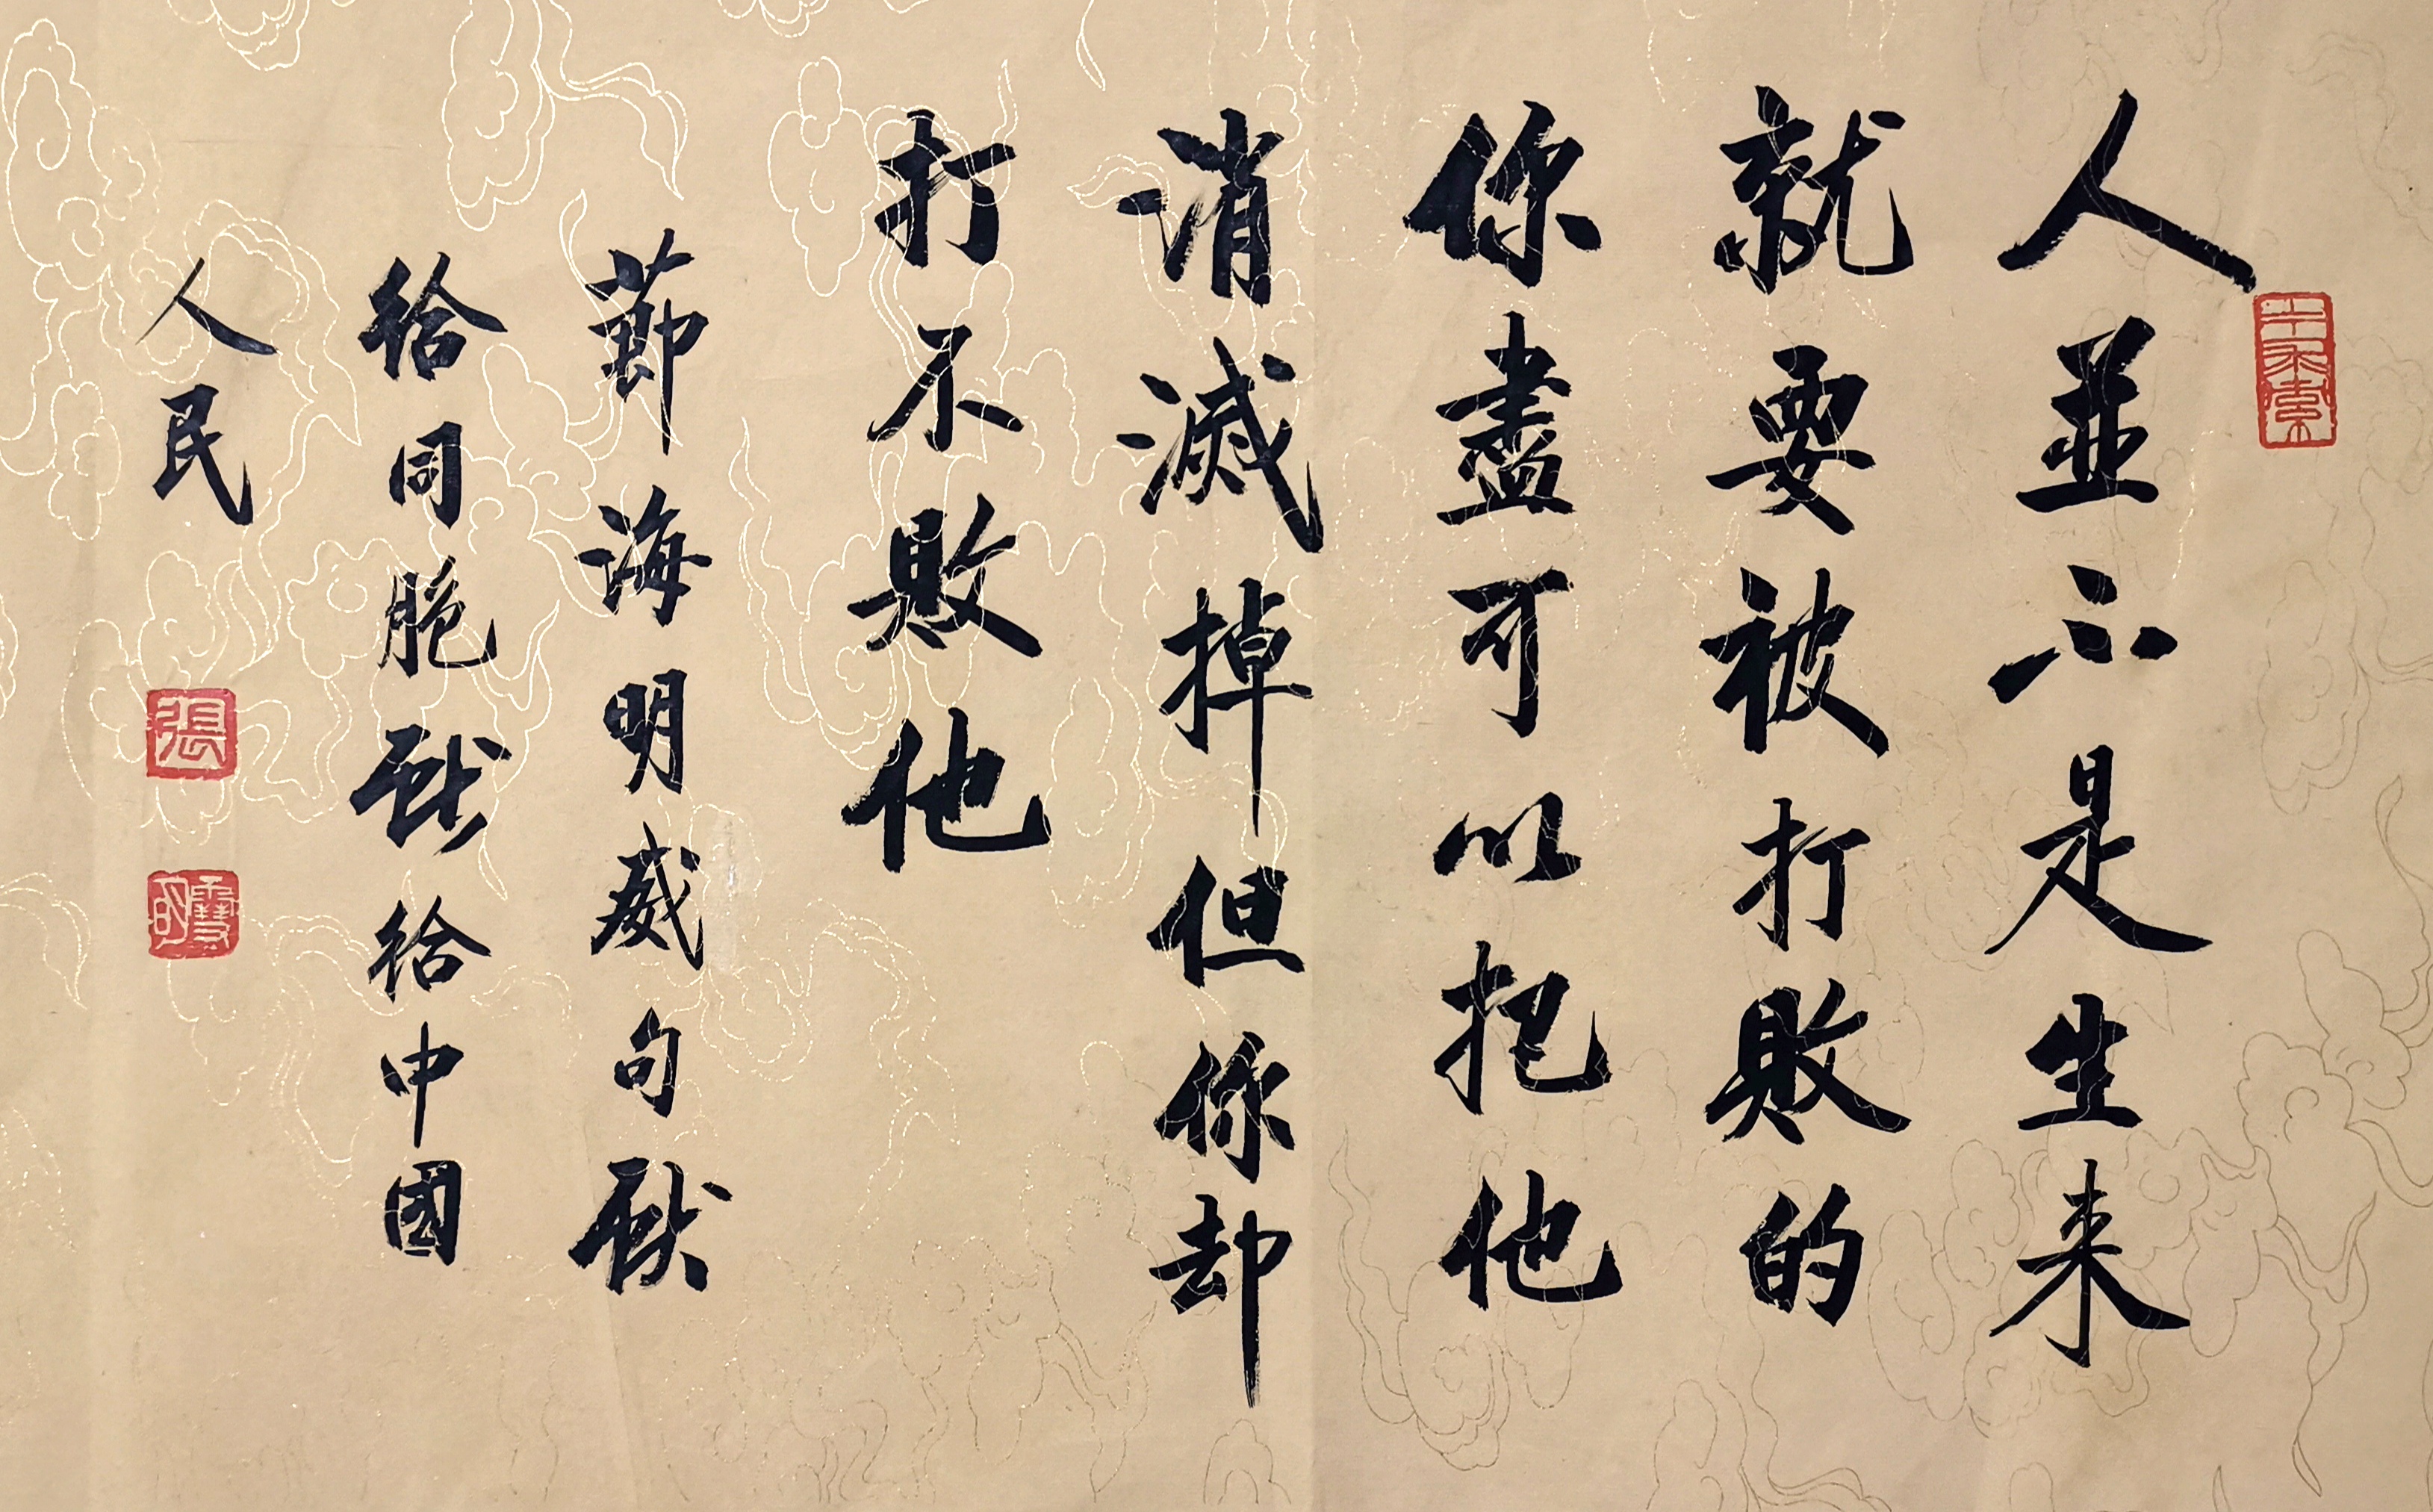 人並不是生来
就要被打敗的
你盡可以把他
消滅掉但你却
打不敗他
節海明威句献
给同胞献给中國
人民
張
雪明